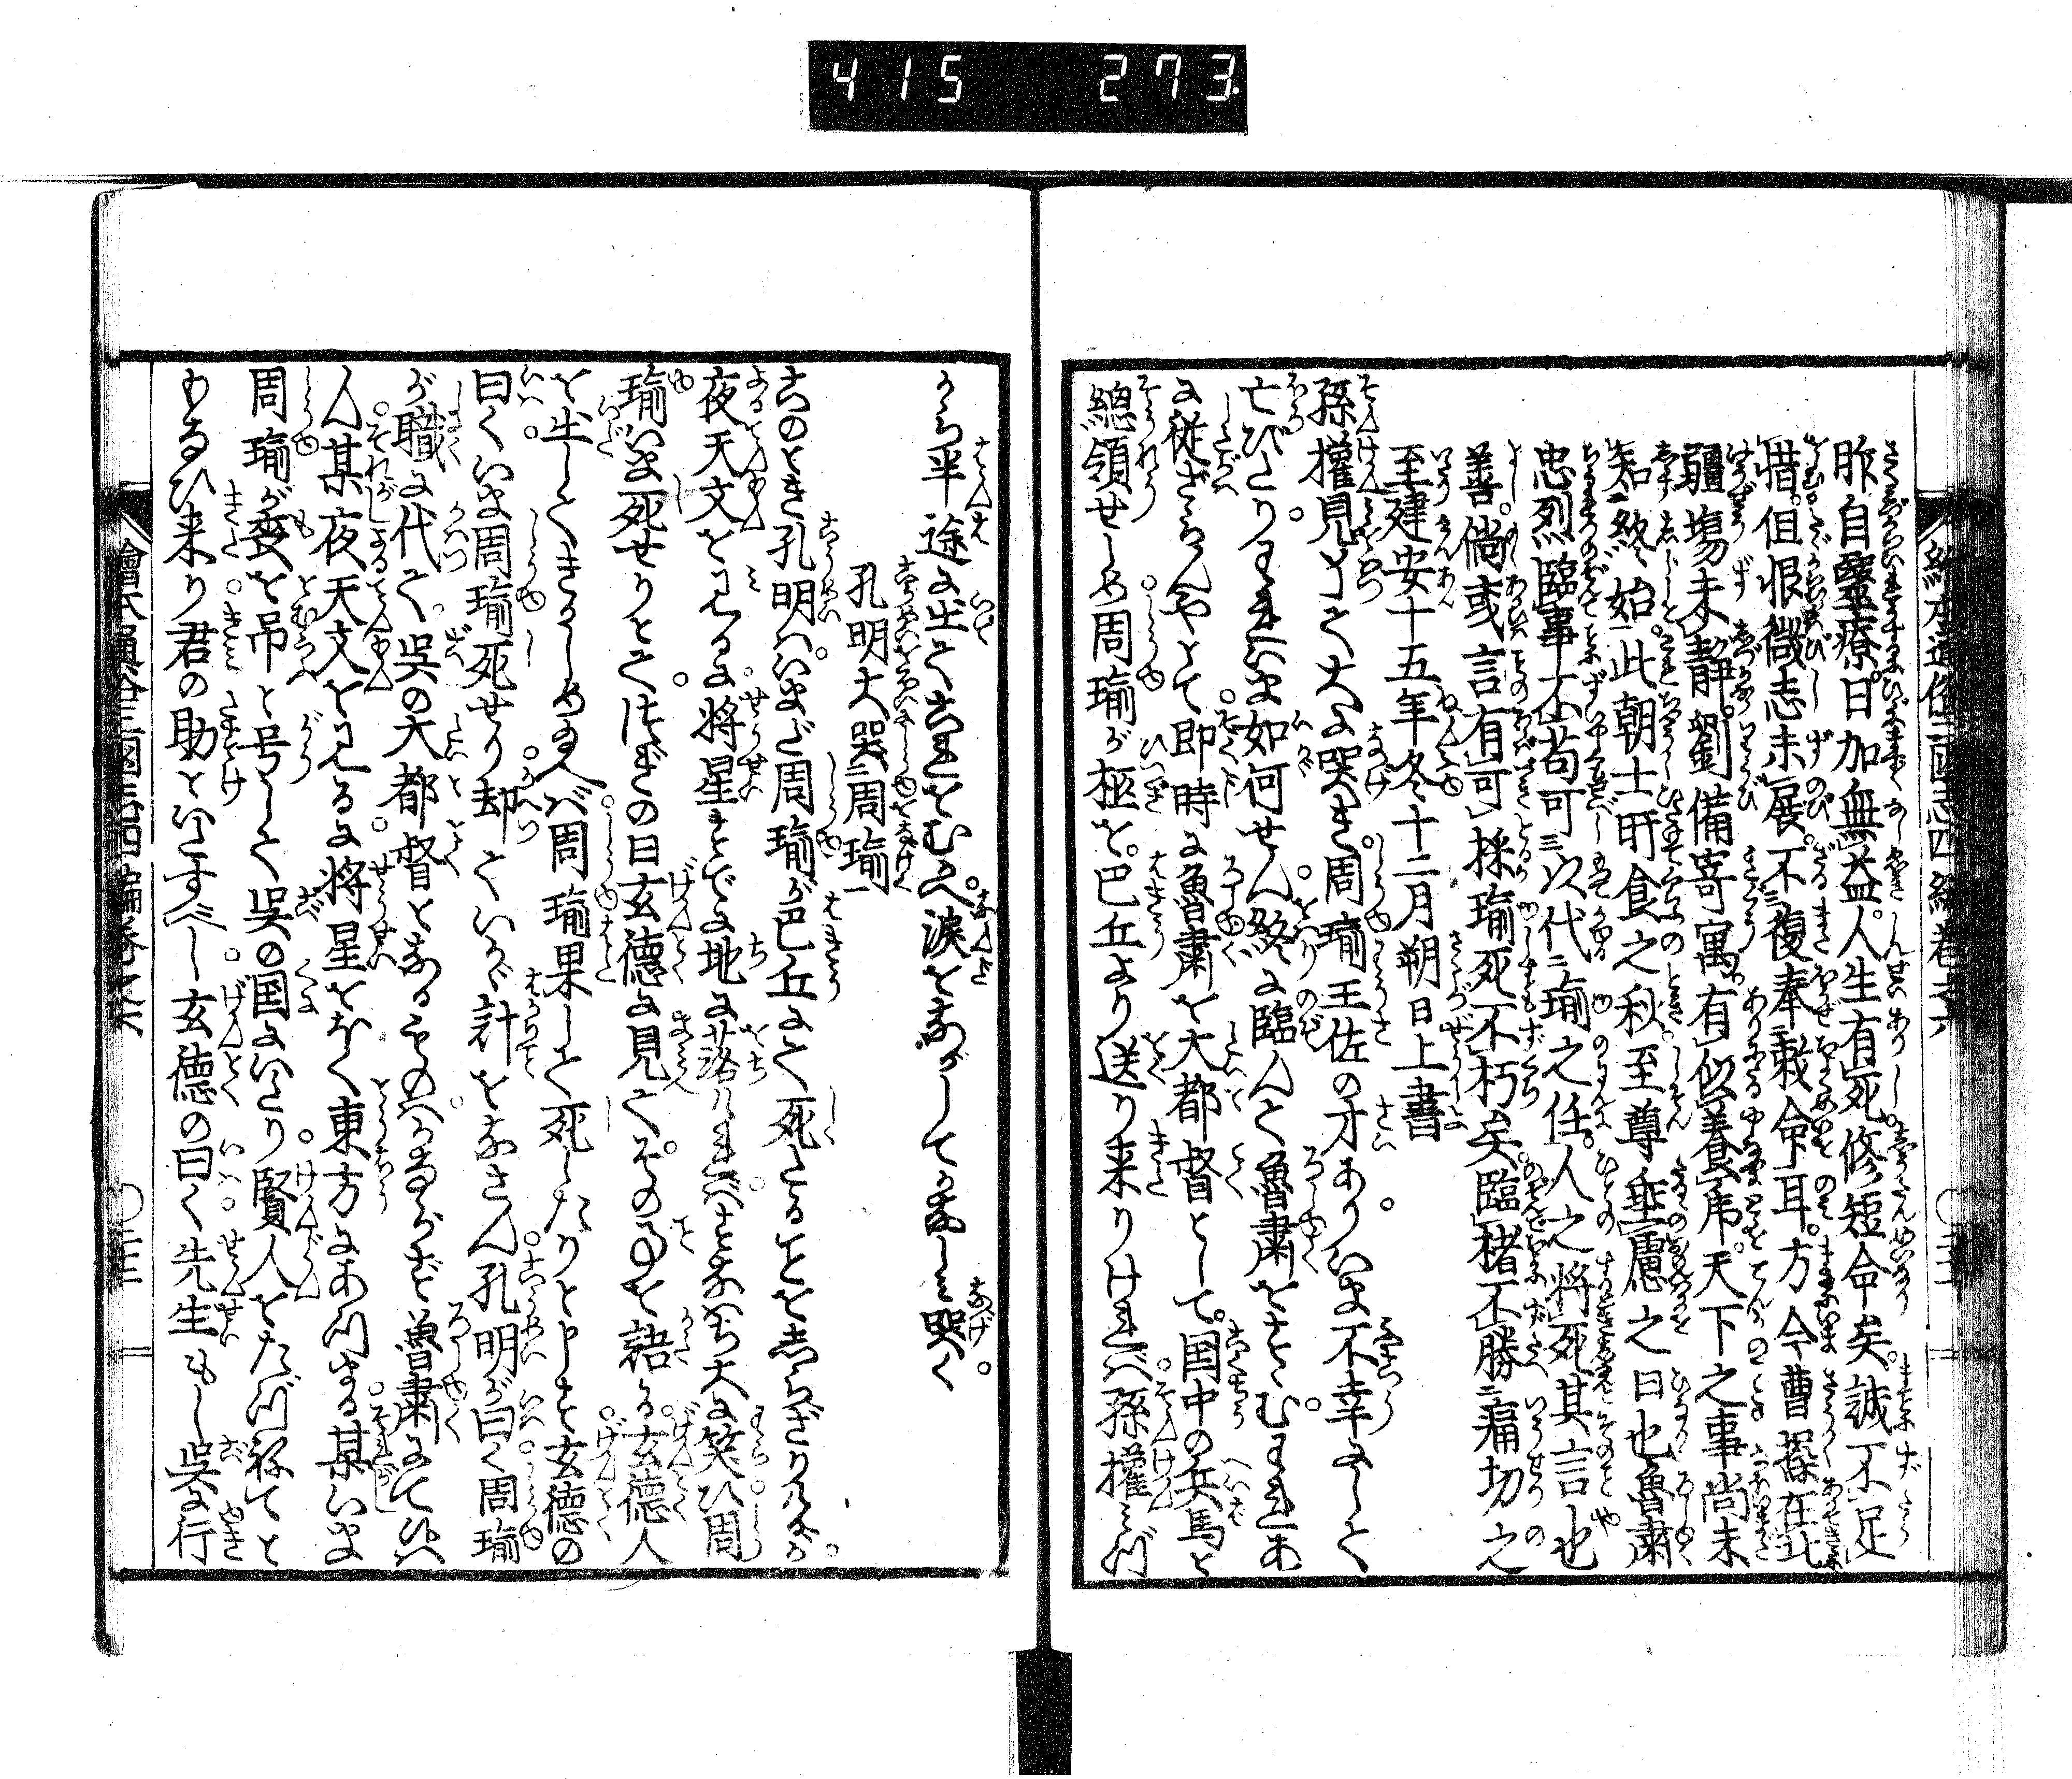 415 273
昨自醫療。日加無益。人生有死。修短命矣。誠不足
惜。但恨微志未展。不復奉敎命耳。方今曹操在北
疆場未靜。劉備寄寓。有似養虎。天下之事尚未
知終始。此朝士旰食之秋。至尊垂慮之日也魯粛
忠烈臨事不苟可以代瑜之任。人之将死其言也
善。尚或言有可採瑜死不朽矣臨楮不勝痛切之
至建安十五年冬十二月朔日上書
孫権見とて大よ哭き。周瑜王佐の才ありいま不幸よして
亡びたりわれいま如何せん。終に臨んで魯粛をすゝむわれあ
に従ざらんやとて。即時に魯粛を大都督として。国中の兵馬を
総領せしめ周瑜が柩を巴丘より送り来りければ。孫権みづ
から半途に出てこれをむかへ。涙をながしてかなしみ哭く。
孔明大哭周瑜
このとき孔明ハ。いまだ周瑜が巴丘にて死たることをしらざりけるが。
夜天文をみるに。将星すでに地に落ければ。すなわち大に笑ひ。周
瑜いま死せりとて。つぎの日玄徳に見て。そのことを語る。玄徳人
を出してきかしめ給へば。周瑜果して死したりと申す。玄徳の
曰く。いま周瑜死せり。却ていかゞ計をなさん。孔明が曰く。周瑜
が職に代て。呉の大都督となるものハ。かならず魯粛にて候べ
し。某夜天文をみるに。将星おほく東方にあつまる。某いま
周瑜が喪を吊と号して。呉の国にいたり。賢人をたづねてと
もなひ来り。君の助といたすべし。玄徳の曰く。先生もし呉に行